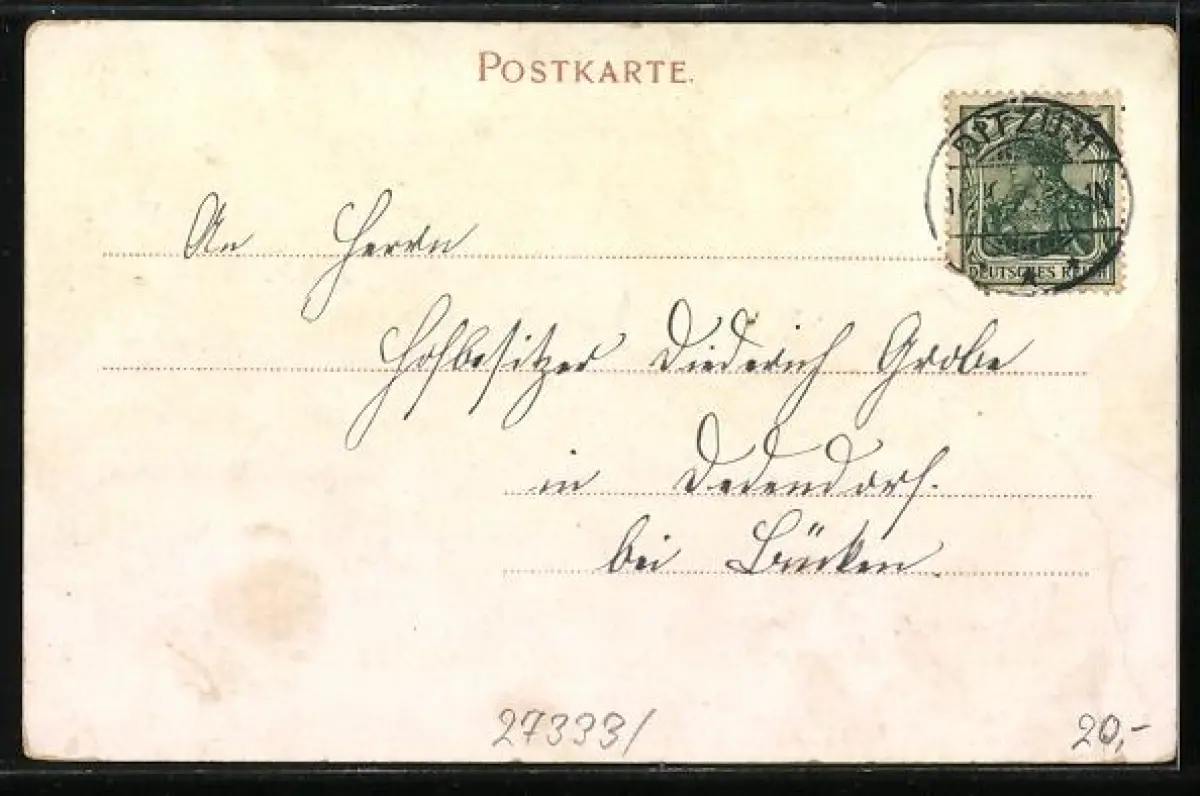 POSTKARTE.
DITZUM
1N
DEUTSCHES REICH
An Herrn
Hofbesitzer Diederich Grobe
in Dedendorf.
bei Bücken
27333/
20,-